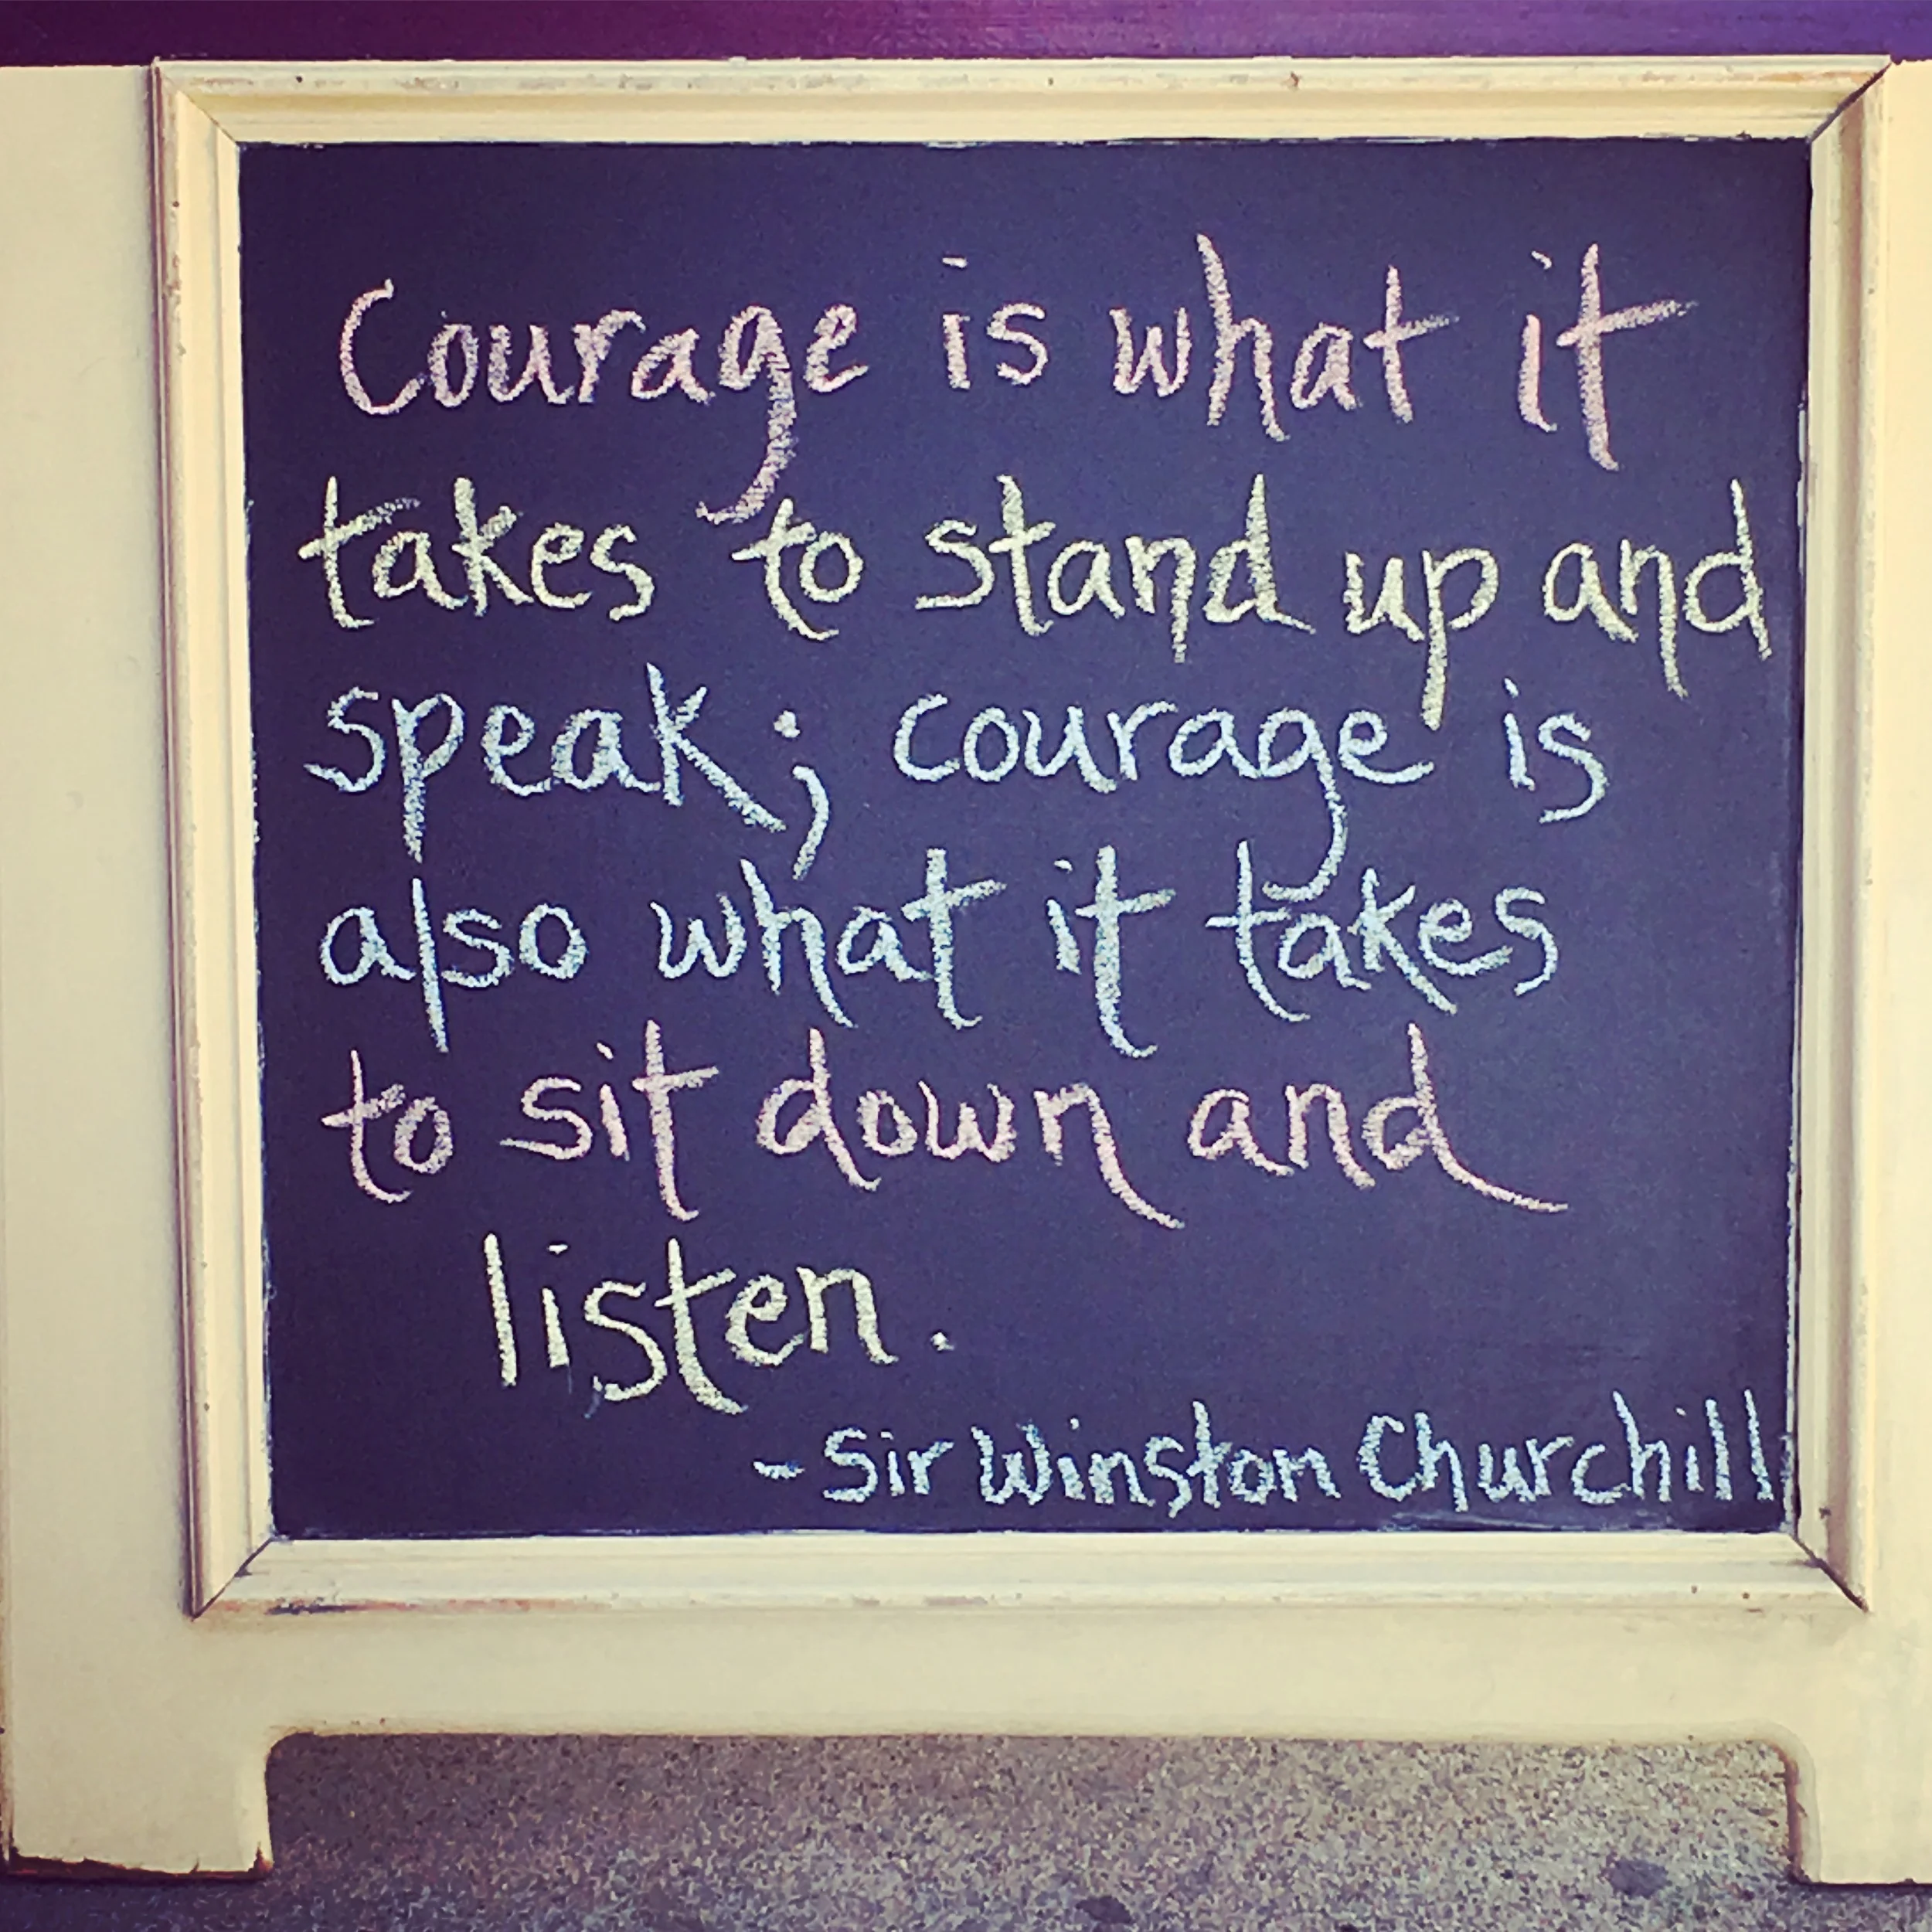 Courage is what it
takes to stand up and
speak; courage is
also what it takes
to sit down and
listen.
- Sir Winston Churchill